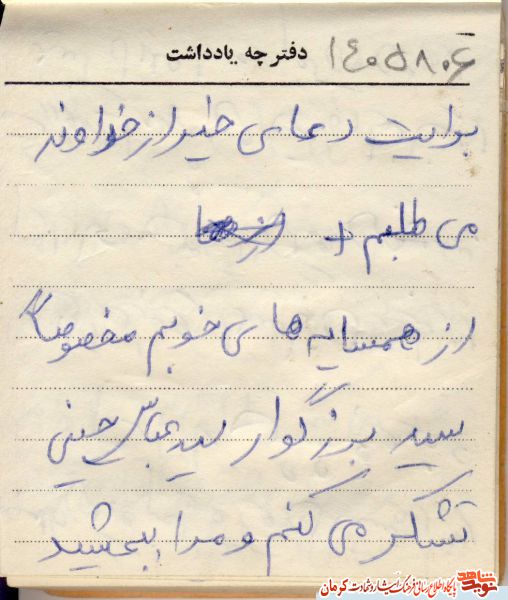 دفترچه یادداشت ۱۴۰۵۸۰۶
برایت دعای خیر از خداوند
می طلبم +
از همسایه های خوبم مخصوصاً
سید بزرگوار سید عباس حسینی
تشکر می کنم و مرا ببخشید
نوید شاهد پایگاه اطلاع رسانی فرهنگ ایثار و شهادت کرمان